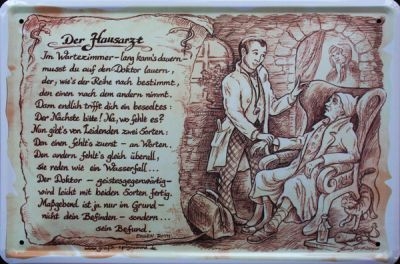 Der Hausarzt
Im Wartezimmer – lang kann's dauern –
musst du auf den Doktor lauern,
der, wie's der Reihe nach bestimmt,
den einen nach dem andern nimmt.
Dann endlich trifft dich ein beseeltes:
Der Nächste bitte! Na, wo fehlt es?
Nun gibt's von Leidenden zwei Sorten:
Dem einen fehlt's zuerst – an Worten.
Dem andern fehlt's gleich überall,
sie reden wie ein Wasserfall...
Der Doktor – geistesgegenwärtig –
wird leicht mit beiden Sorten fertig.
Maßgebend ist ja nur im Grund –
nicht dein Befinden – sondern...
sein Befund.
EUGEN ROTH